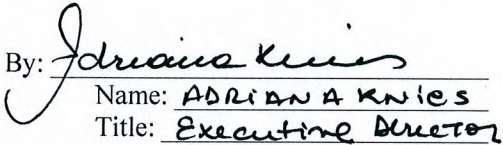 By: Adriana Knies
Name: ADRIANA KNIES
Title: Executive Director